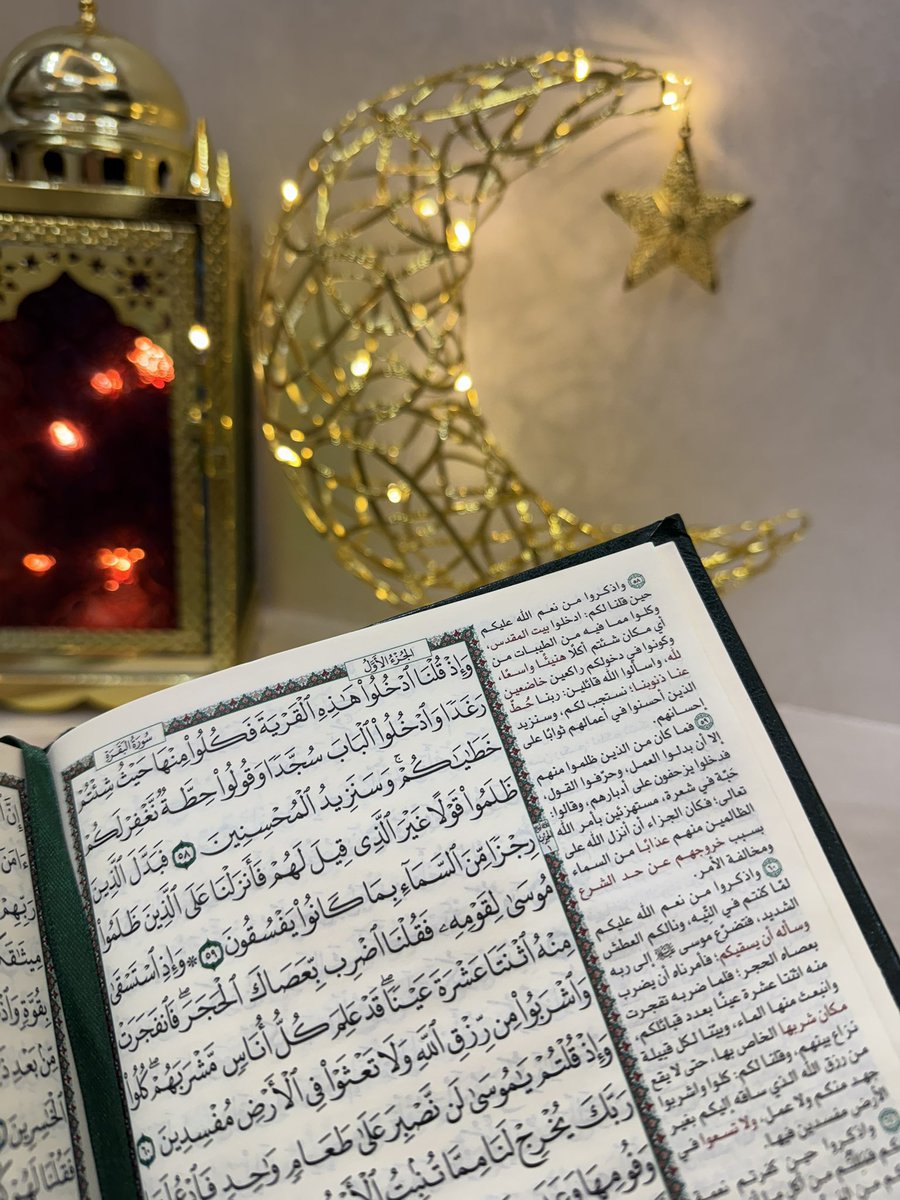 الجُزْءُ الأَوَّلُ
سُورَةُ البَقَرَةِ
وَإِذْ قُلْنَا ٱدْخُلُوا۟ هَٰذِهِ ٱلْقَرْيَةَ فَكُلُوا۟ مِنْهَا حَيْثُ شِئْتُمْ
رَغَدًا وَٱدْخُلُوا۟ ٱلْبَابَ سُجَّدًا وَقُولُوا۟ حِطَّةٌ نَّغْفِرْ لَكُمْ
خَطَٰيَٰكُمْ ۚ وَسَنَزِيدُ ٱلْمُحْسِنِينَ ٥٨ فَبَدَّلَ ٱلَّذِينَ
ظَلَمُوا۟ قَوْلًا غَيْرَ ٱلَّذِى قِيلَ لَهُمْ فَأَنزَلْنَا عَلَى ٱلَّذِينَ ظَلَمُوا۟
رِجْزًا مِّنَ ٱلسَّمَآءِ بِمَا كَانُوا۟ يَفْسُقُونَ ٥٩ ۞ وَإِذِ ٱسْتَسْقَىٰ
مُوسَىٰ لِقَوْمِهِۦ فَقُلْنَا ٱضْرِب بِّعَصَاكَ ٱلْحَجَرَ ۖ فَٱنفَجَرَتْ
مِنْهُ ٱثْنَتَا عَشْرَةَ عَيْنًا ۖ قَدْ عَلِمَ كُلُّ أُنَاسٍ مَّشْرَبَهُمْ ۖ كُلُوا۟
وَٱشْرَبُوا۟ مِن رِّزْقِ ٱللَّهِ وَلَا تَعْثَوْا۟ فِى ٱلْأَرْضِ مُفْسِدِينَ ٦٠
وَإِذْ قُلْتُمْ يَٰمُوسَىٰ لَن نَّصْبِرَ عَلَىٰ طَعَامٍ وَٰحِدٍ فَٱدْعُ لَنَا
رَبَّكَ يُخْرِجْ لَنَا مِمَّا تُنۢبِتُ ٱلْأَرْضُ
وَفُومِهَا وَعَدَسِهَا
٥٨ واذكروا من نعم الله عليكم
حين قلنا لكم: ادخلوا بيت المقدس،
وكلوا مما فيه من الطيبات من
أي مكان شئتم أكلًا هنيئًا واسعًا
وكونوا في دخولكم راكعين خاضعين
لله، واسألوا الله قائلين: ربنا حُطَّ
عنا ذنوبنا؛ نستجب لكم، وسنزيد
الذين أحسنوا في أعمالهم ثوابًا على
إحسانهم.
٥٩ فما كان من الذين ظلموا منهم
إلا أن بدلوا العمل، وحرَّفوا القول،
فدخلوا يزحفون على أدبارهم، وقالوا:
حبَّة في شعرة، مستهزئين بأمر الله
تعالى؛ فكان الجزاء أن أنزل الله على
الظالمين منهم عذابًا من السماء
بسبب خروجهم عن حد الشرع
ومخالفة الأمر.
٦٠ واذكروا من نعم الله عليكم
لمَّا كنتم في التِّيه، ونالكم العطش
الشديد، فتضرَّع موسى ﷺ إلى ربه
وسأله أن يسقيكم؛ فأمرناه أن يضرب
بعصاه الحجر؛ فلما ضربه تفجرت
منه اثنتا عشرة عينًا بعدد قبائلكم،
وانبعث منها الماء، وبيّنا لكل قبيلة
مكان شربها الخاص بها، حتى لا يقع
نزاع بينهم، وقلنا لكم: كلوا واشربوا
من رزق الله الذي ساقه إليكم بغير
جهد منكم ولا عمل، ولا تسعوا في
الأرض مفسدين فيها.
واذكروا حين كفرتم نعمة